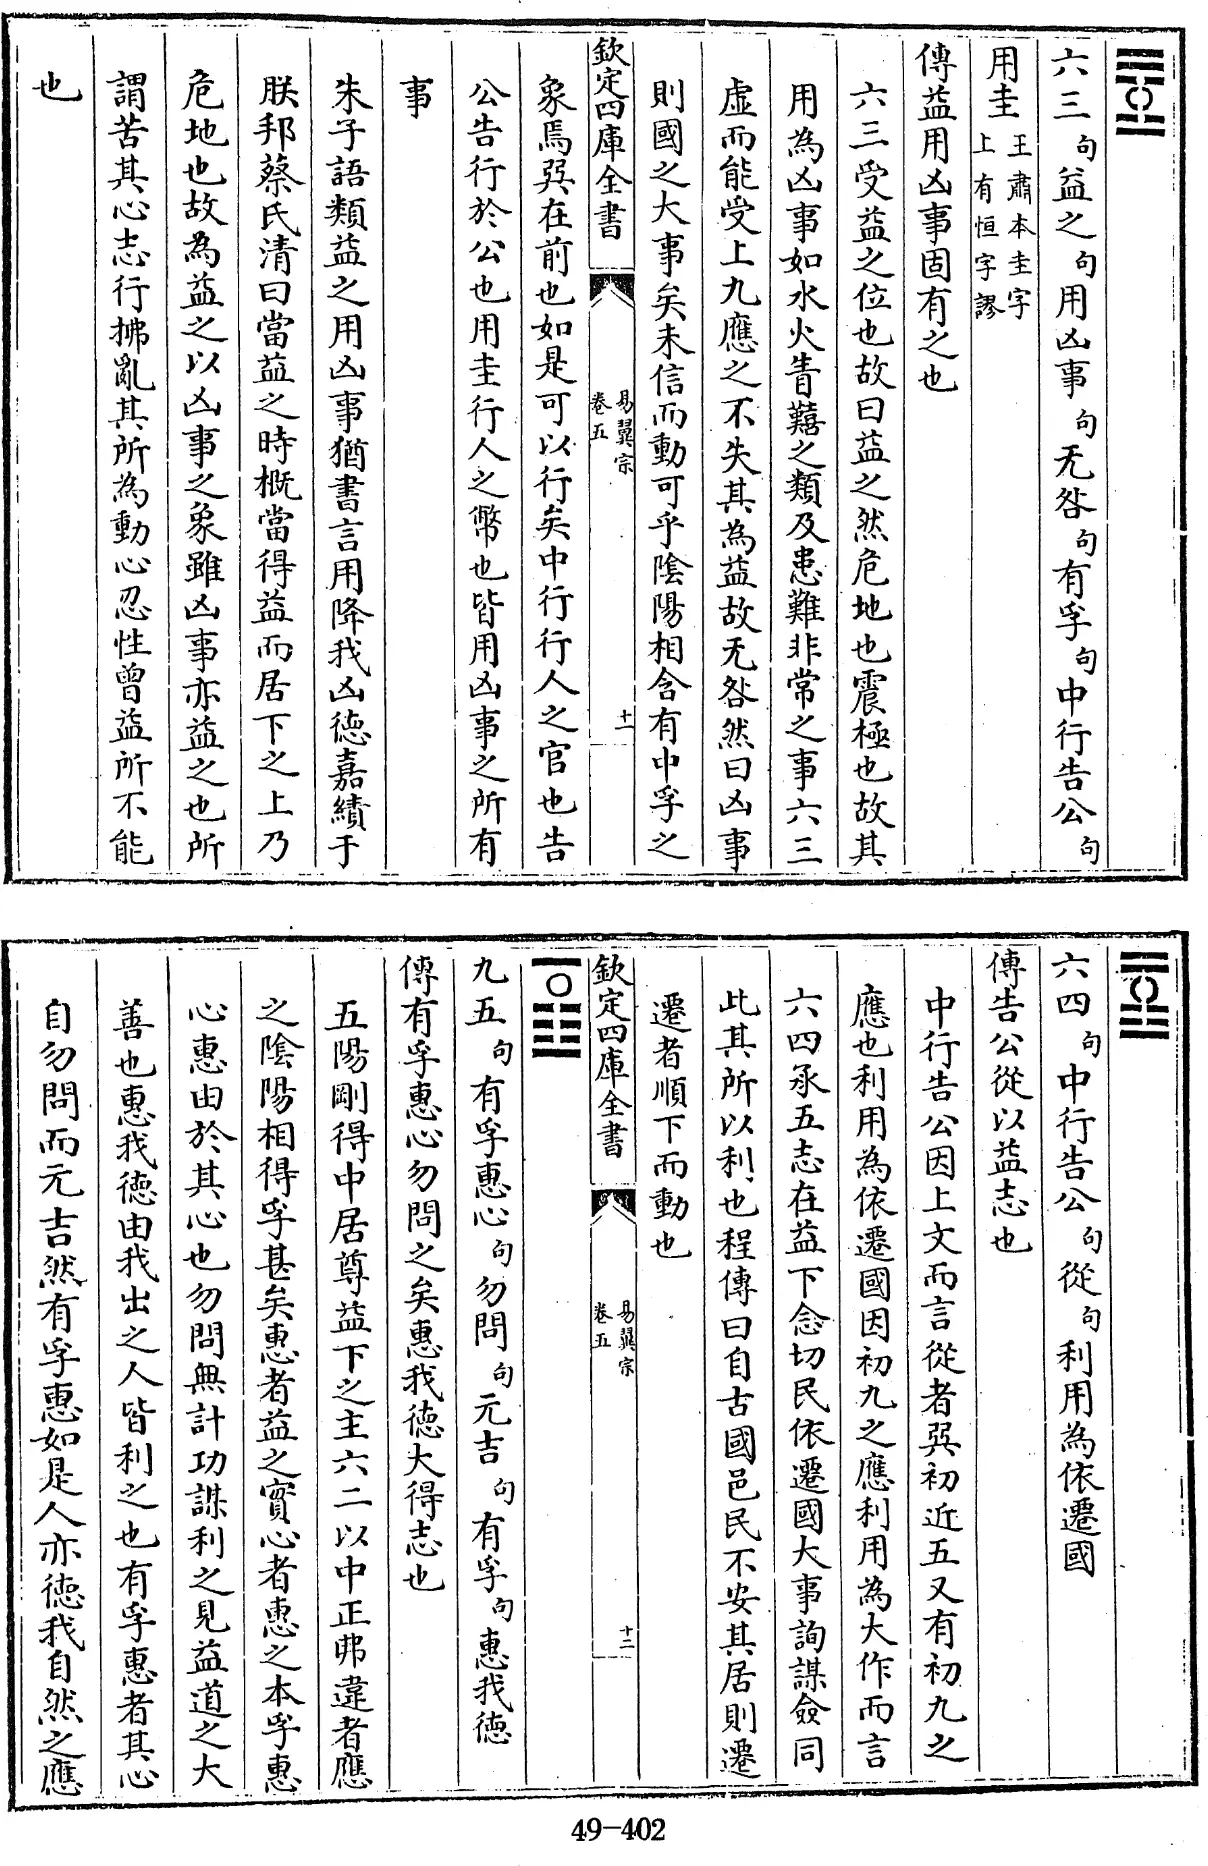 六三句益之句用凶事句无咎句有孚句中行告公句
用圭王肅本圭字上有恒字謬
傳益用凶事固有之也
六三受益之位也故曰益之然危地也震極也故其
用為凶事如水火眚囏之類及患難非常之事六三
虛而能受上九應之不失其為益故无咎然曰凶事
則國之大事矣未信而動可乎陰陽相含有中孚之
欽定四庫全書 易翼宗 卷五 十一
象焉巽在前也如是可以行矣中行行人之官也告
公告行於公也用圭行人之幣也皆用凶事之所有
事
朱子語類益之用凶事猶書言用降我凶德嘉績于
朕邦蔡氏清曰當益之時概當得益而居下之上乃
危地也故為益之以凶事之象雖凶事亦益之也所
謂苦其心志行拂亂其所為動心忍性曾益所不能
也
六四句中行告公句從句利用為依遷國
傳告公從以益志也
中行告公因上文而言從者巽初近五又有初九之
應也利用為依遷國因初九之應利用為大作而言
六四承五志在益下念切民依遷國大事詢謀僉同
此其所以利也程傳曰自古國邑民不安其居則遷
遷者順下而動也
欽定四庫全書 易翼宗 卷五 十二
九五句有孚惠心句勿問句元吉句有孚句惠我德
傳有孚惠心勿問之矣惠我德大得志也
五陽剛得中居尊益下之主六二以中正弗違者應
之陰陽相得孚甚矣惠者益之實心者惠之本孚惠
心惠由於其心也勿問無計功謀利之見益道之大
善也惠我德由我出之人皆利之也有孚惠者其心
自勿問而元吉然有孚惠如是人亦德我自然之應
49-402